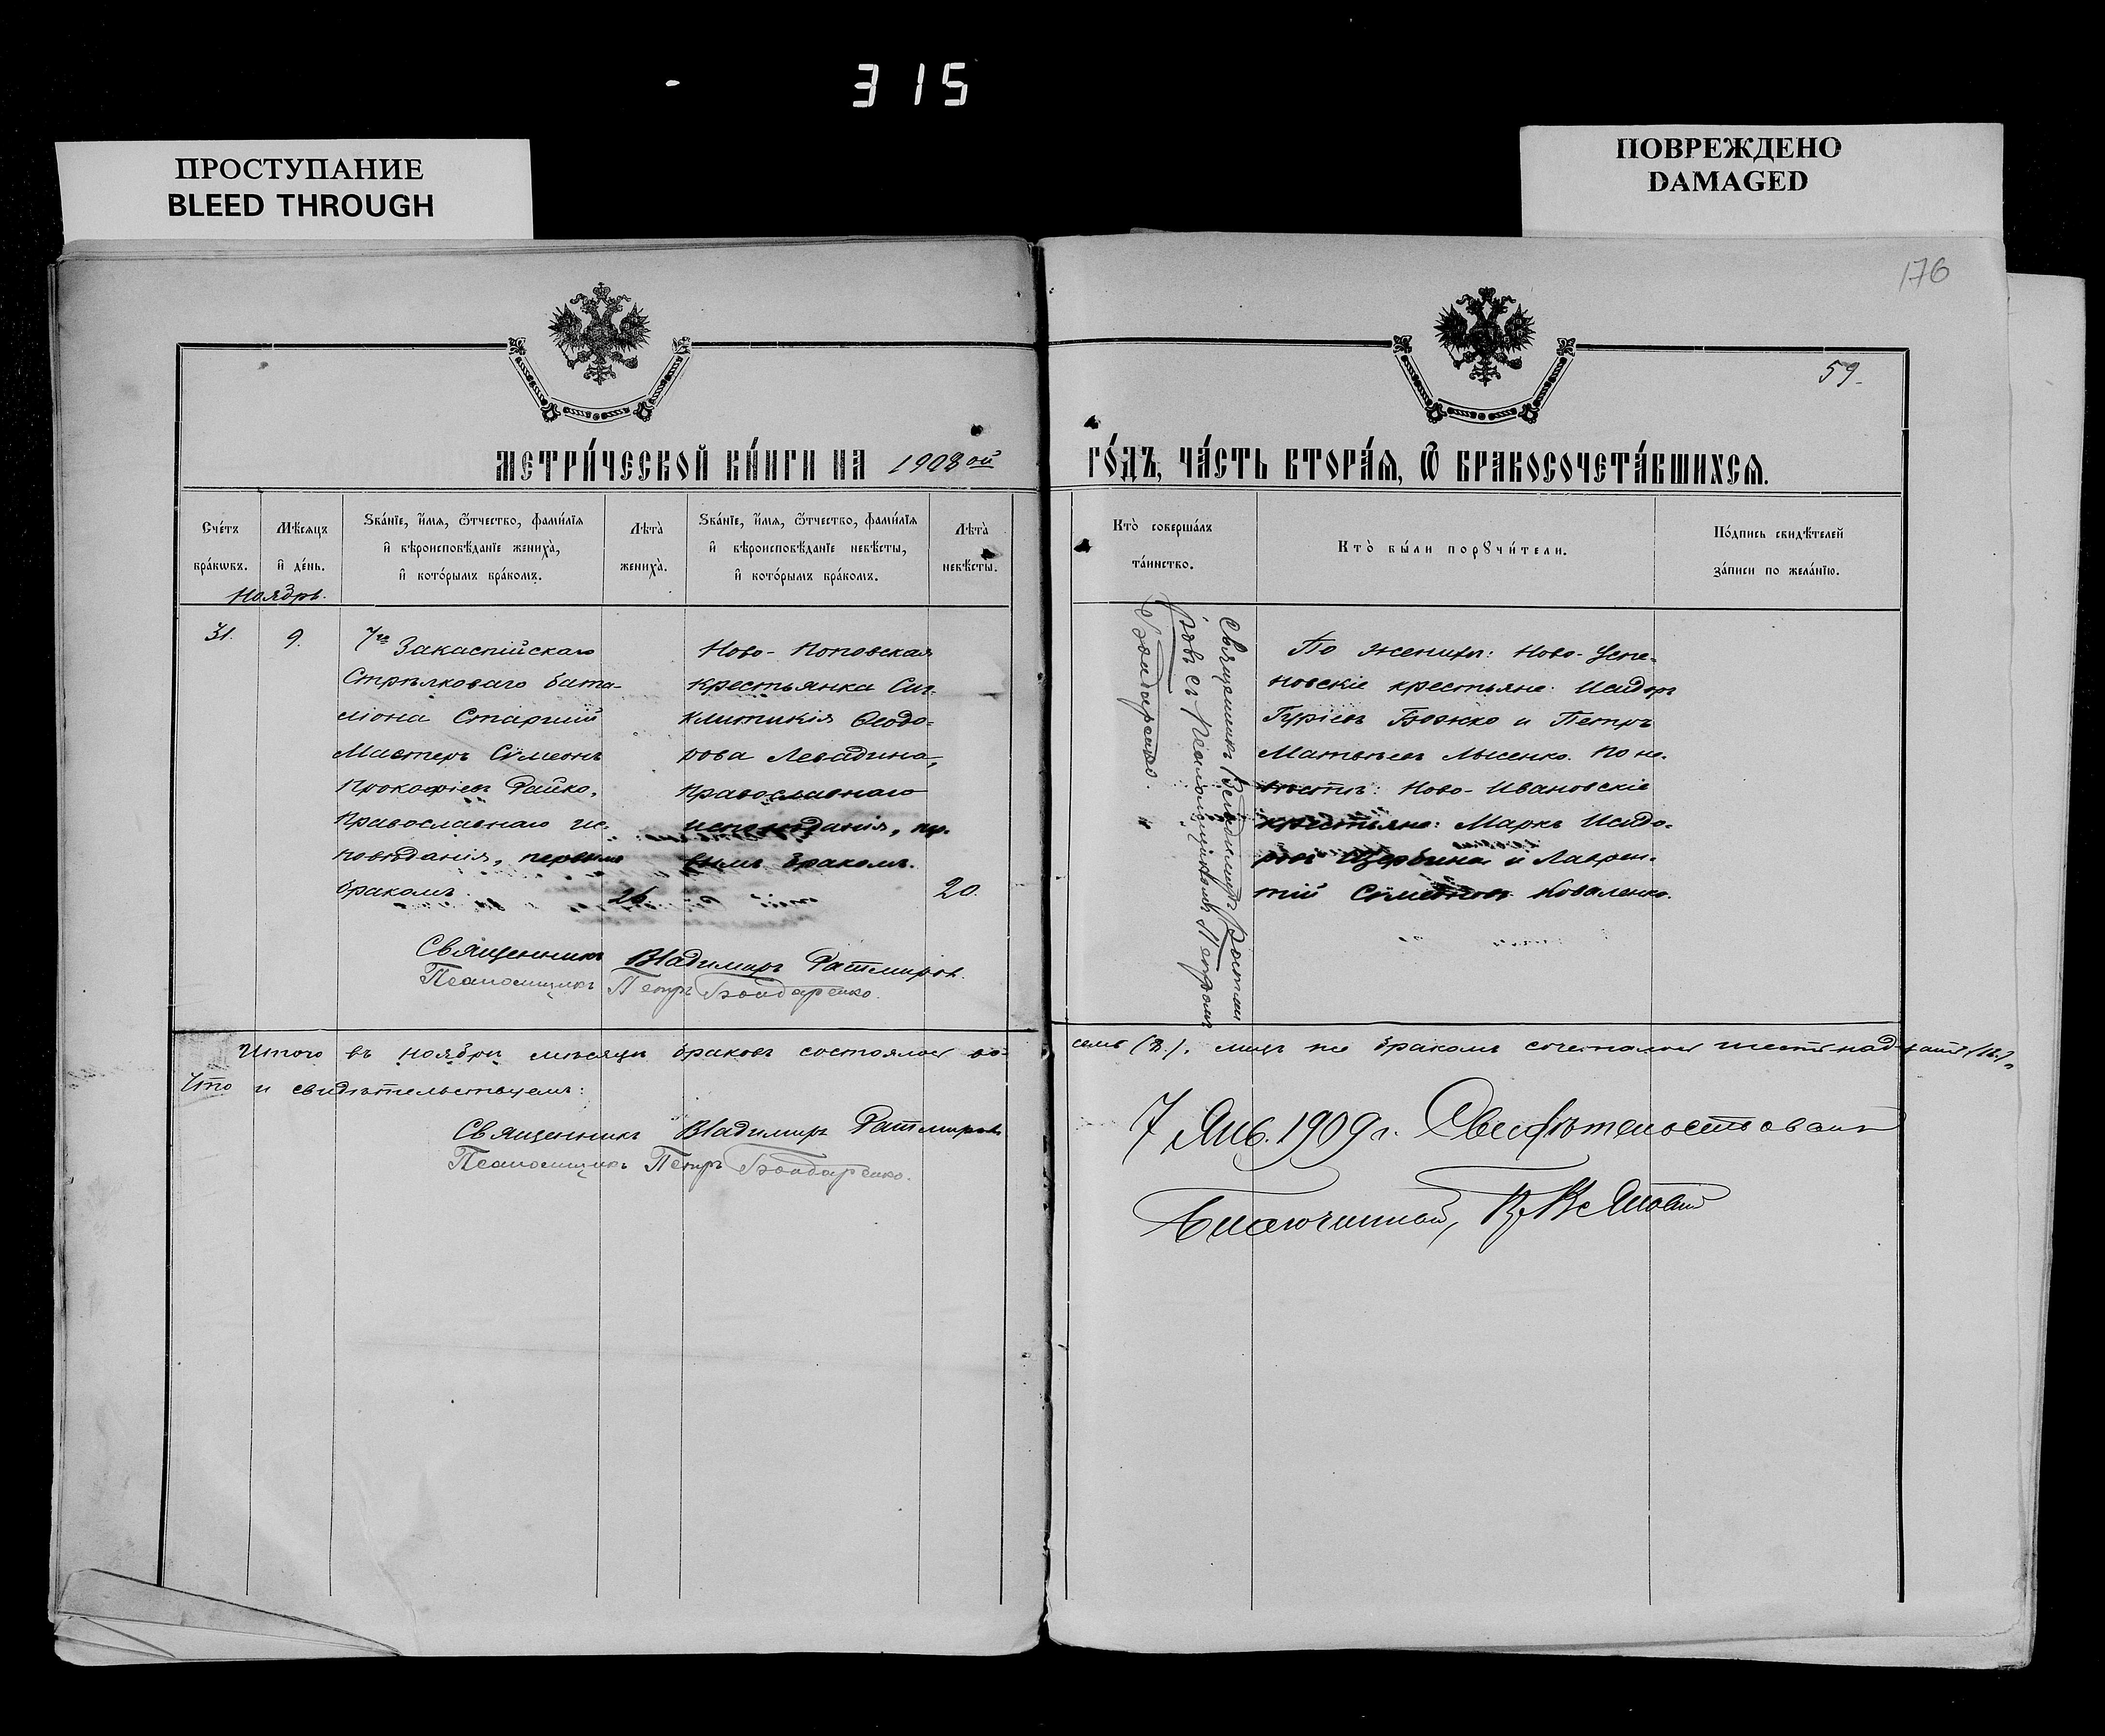 315
ПРОСТУПАНИЕ
BLEED THROUGH
ПОВРЕЖДЕНО
DAMAGED
176
59.
МЕТРИ́ЧЕСКОЙ КНИ́ГИ НА 1908ой
ГО́ДЪ, ЧА́СТЬ ВТОРА́Я, Ѿ БРАКОСОЧЕТА́ВШИХСЯ.
Сче́тъ
бра́кѡвъ.
Мѣ́сяцъ
и҆ де́нь.
Ѕва́нїе, и҆́мя, ѻ҆́тчество, фами́лїя
и҆ вѣроисповѣ́данїе жениха̀,
и҆ кото́рымъ бра́комъ.
Лѣта̀
жениха̀.
Ѕва́нїе, и҆́мя, ѻ҆́тчество, фами́лїя
и҆ вѣроисповѣ́данїе невѣ́сты,
и҆ кото́рымъ бра́комъ.
Лѣта̀
невѣ́сты.
Кто̀ соверша́лъ
та́инство.
Кто̀ бы́ли порꙋчи́тели.
По́дпись свидѣ́телей
за́писи по жела́нїю.
Ноябрь.
31.
9.
7го Закаспійскаго
Стрѣлковаго бата-
ліона Старшій
Мастеръ Сѵмеонъ
Прокофіевъ Райко,
Православнаго ис-
повѣданія, первымъ
бракомъ.
26.
Ново-Поповская
крестьянка Син-
клитикія Ѳеодо-
рова Левадина,
Православнаго
исповѣданія, пер-
вымъ бракомъ.
20.
Священникъ Владимиръ Ратми
ровъ съ Псаломщикомъ Петромъ
Бондаренко.
По женихѣ: Ново-Успе-
новскіе крестьяне: Исидоръ
Гуріевъ Божко и Петръ
Матвѣевъ Лысенко. По не-
вѣстѣ: Ново-Ивановскіе
крестьяне: Маркъ Исидо-
ровъ Щербина и Лаврен-
тій Сѵмеоновъ Коваленко.
Священникъ Владимиръ Ратмировъ.
Псаломщикъ Петръ Бондаренко.
Итого въ ноябрѣ мѣсяцѣ браковъ состоялось во-
семь (8.). лицъ же бракомъ сочеталось шестнадцать (16.),
Что и свидѣтельствуемъ:
Священникъ Владимиръ Ратмировъ
Псаломщикъ Петръ Бондаренко.
7 Янв. 1909 г. Свидѣтельствовалъ
Благочинный,